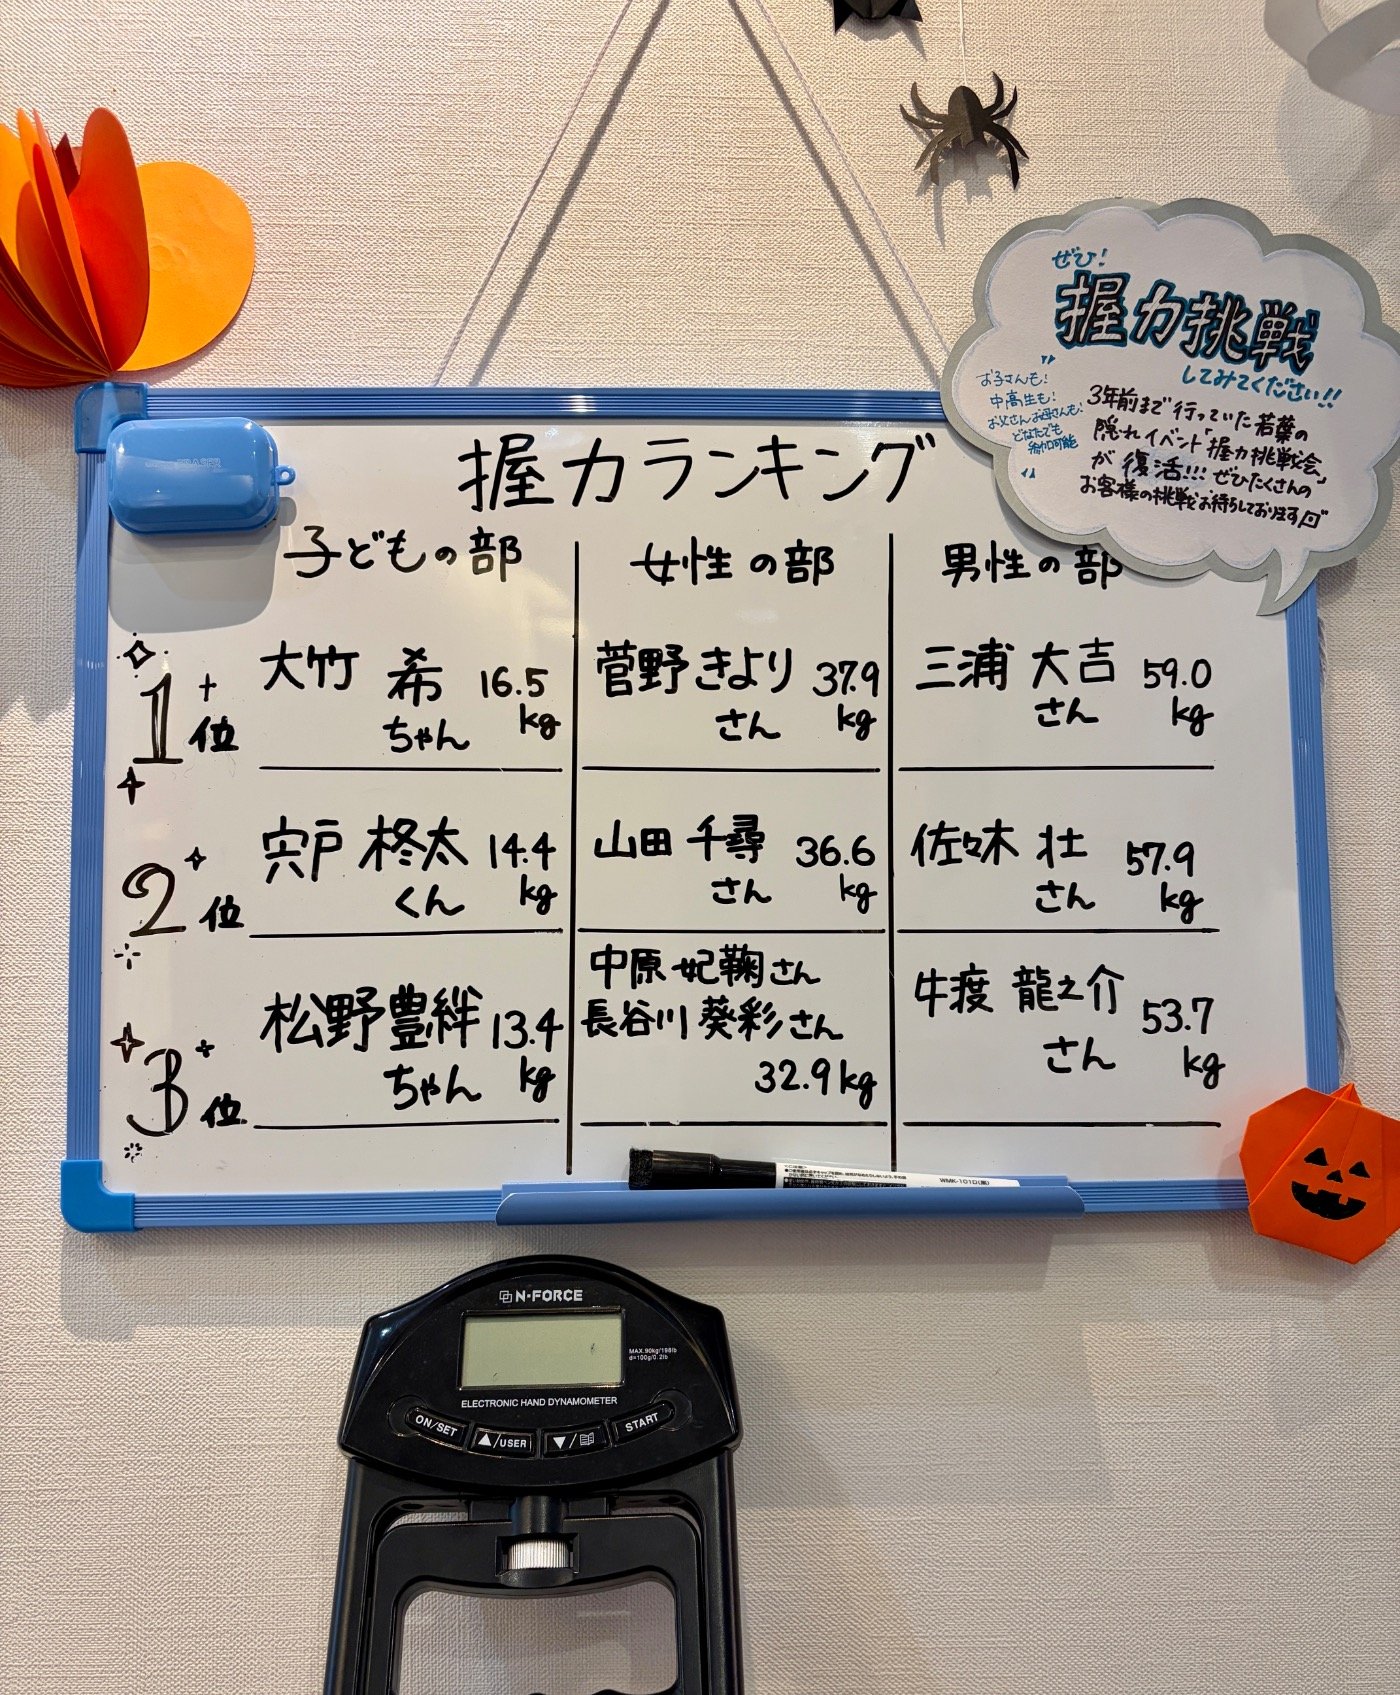 ぜひ!
握力挑戦
してみてください!!
お子さんも!
中高生も!
お父さんお母さんも!
どなたでも
参加可能
3年前まで行っていた若葉の
隠れイベント「握力挑戦会」
が復活!!! ぜひたくさんの
お客様の挑戦お待ちしております
握力ランキング
子どもの部 女性の部 男性の部
1位
大竹 希 16.5
ちゃん kg
菅野 きより 37.9
さん kg
三浦 大吉 59.0
さん kg
2位
宍戸 柊太 14.4
くん kg
山田 千尋 36.6
さん kg
佐々木 壮 57.9
さん kg
3位
松野豊絆 13.4
ちゃん kg
中原 妃鞠さん
長谷川 葵彩さん
32.9kg
牛渡 龍之介 53.7
さん kg
WMK-101D(黒)
N-FORCE
MAX.90kg/198lb
d=100g/0.2lb
ELECTRONIC HAND DYNAMOMETER
ON/SET ▲/USER ▼/ START